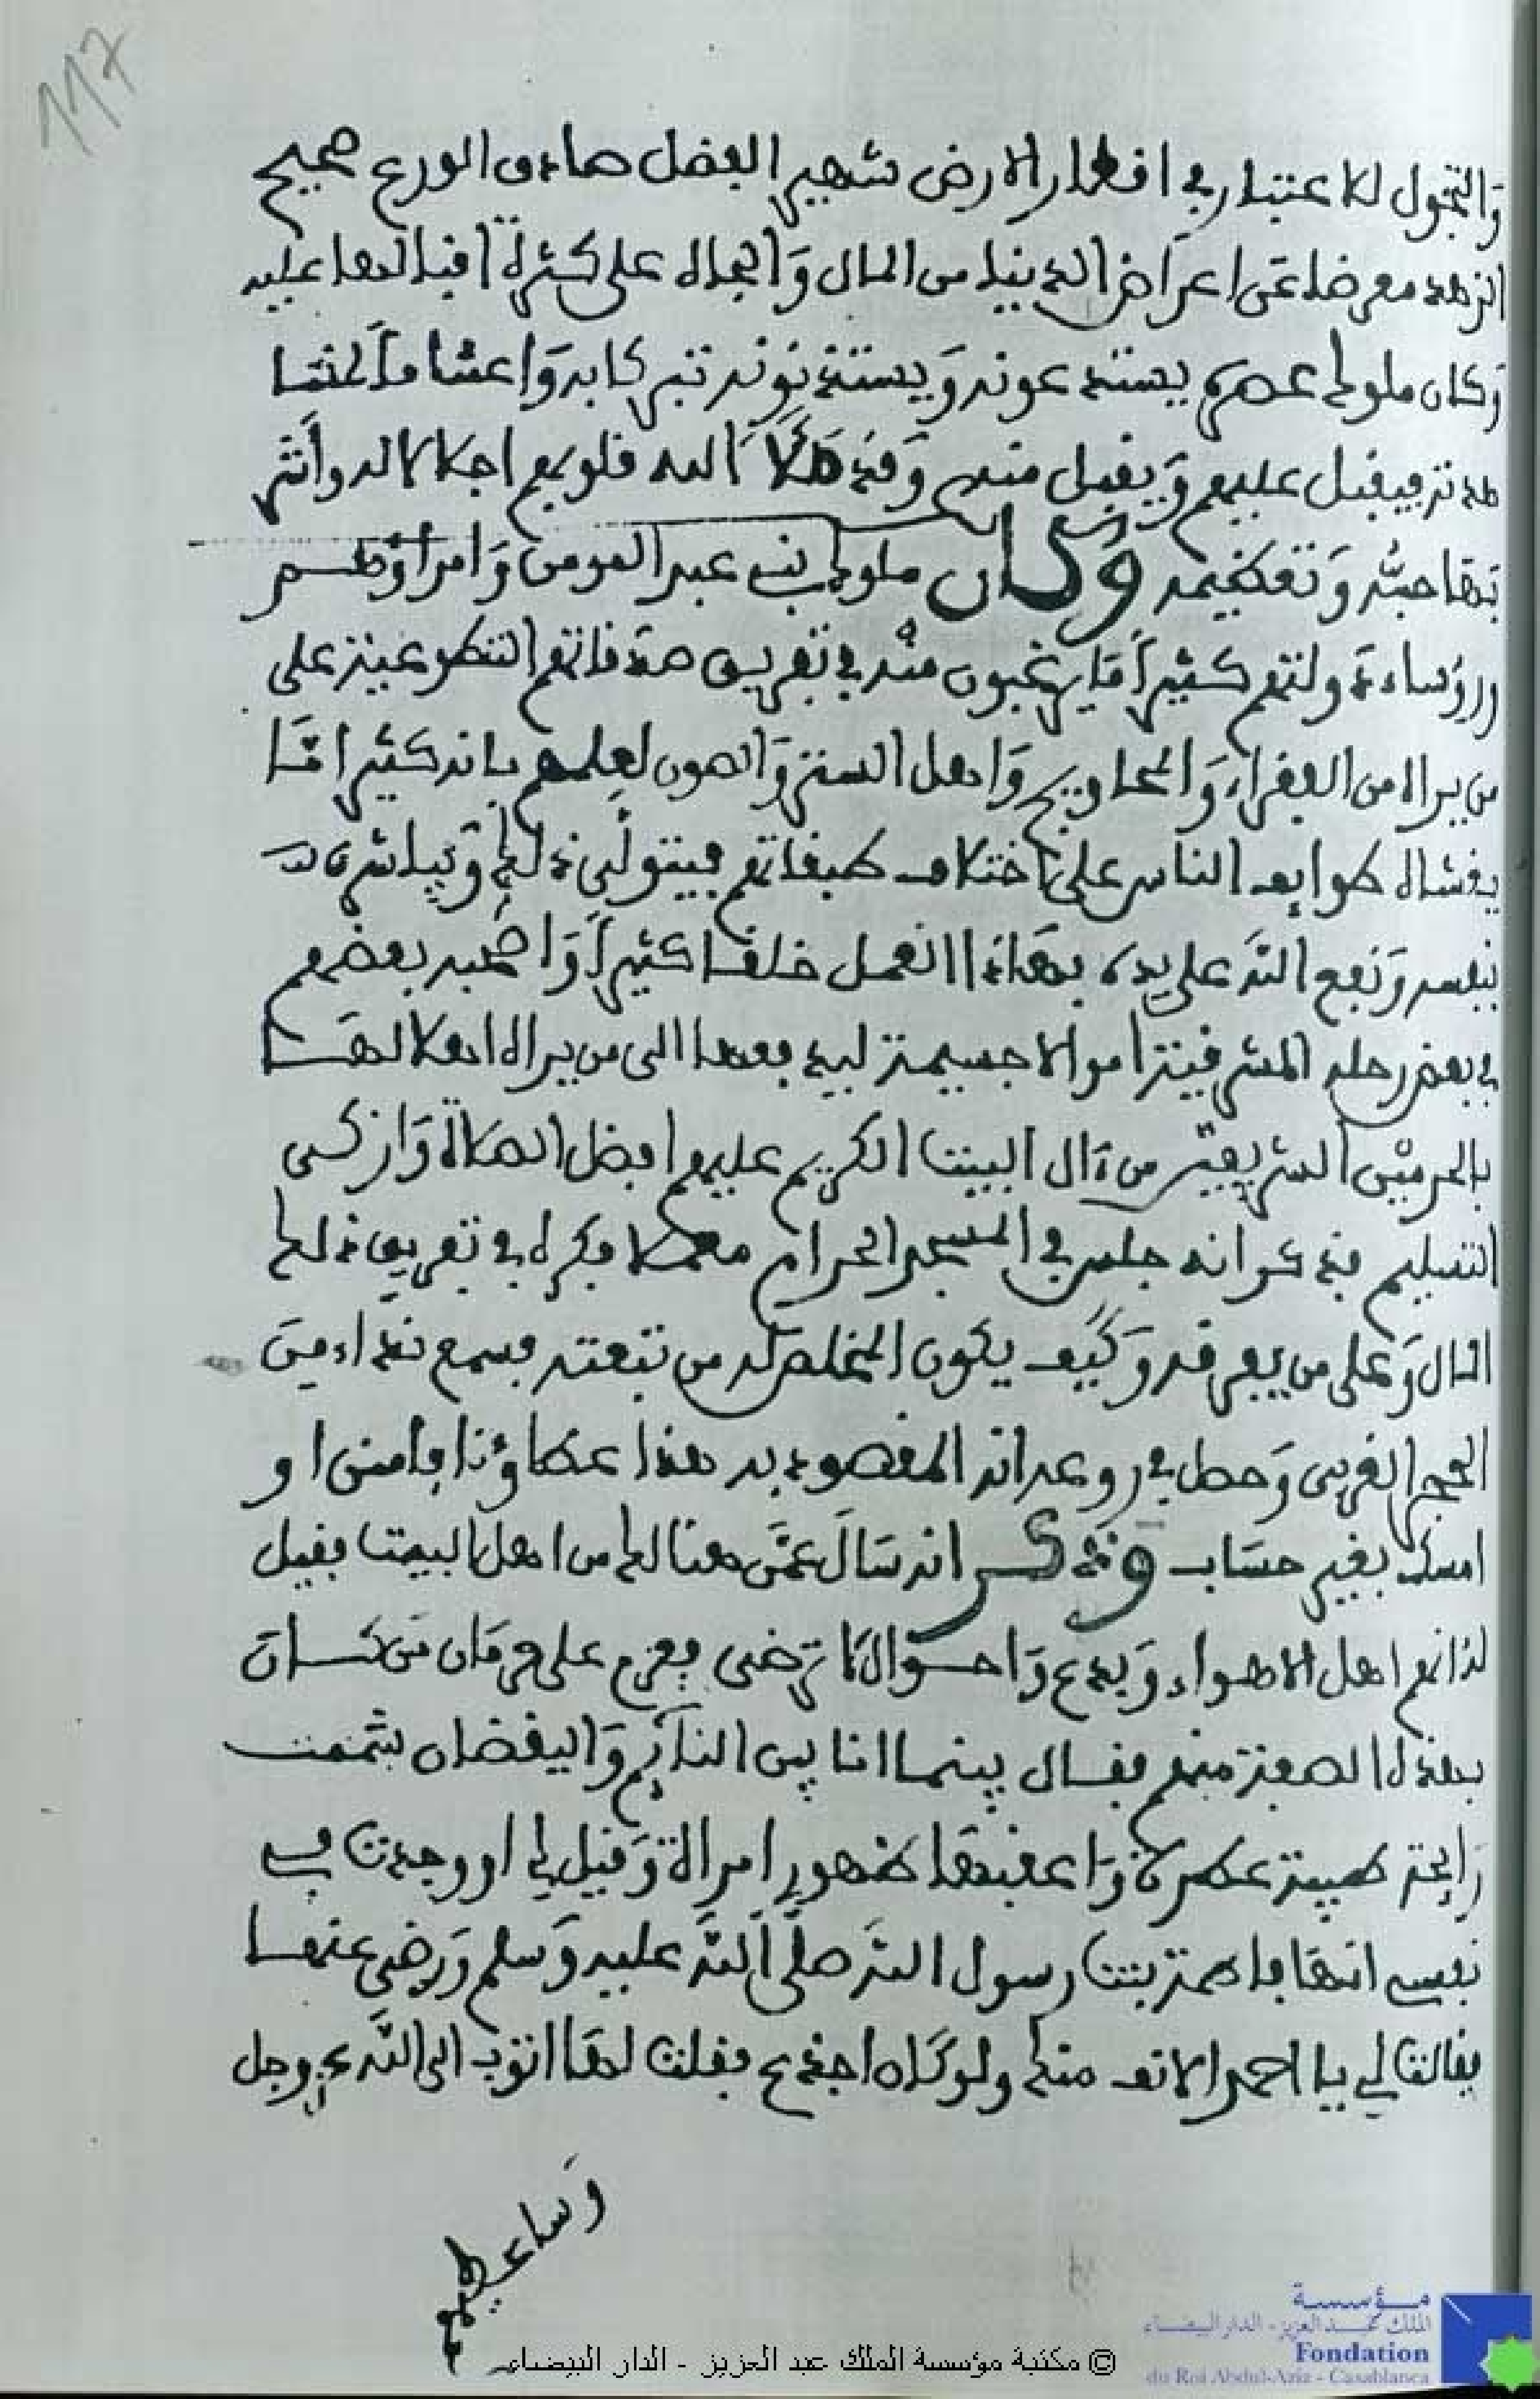 117
والتجول للاعتبار في اقطار الارض شهير الفضل صادق الورع صحيح
الزهد معرضا عن اعراض الدنيا من المال والجاه على كثرة اقبالها عليه
وكان ملوك عصره يستدعونه ويستقدمونه تبركا به واغتناما لخدمته
فيقبل عليهم ويقبل منهم وقد ملأ الله قلوبهم اجلالا له واشربها
حبه وتعظيمه وكان ملوك بني عبد المومن وامراوهم
ورؤساء دولتهم كثيرا ما يرغبون منه في تفريق صدقاتهم التطوعية على
من يراه من الفقراء والمحاويج واهل الستر والصون لعلمهم بانه كثيرا ما
يغشاه طوايف الناس على اختلاف طبقاتهم فيتولى ذلك ويباشره
بنفسه ونفع الله على يده بهاذا العمل خلقا كثيرا واصحبه بعضهم
في بعض رحله المشرقية اموالا جسيمة ليدفعها الى من يراه اهلا لها
بالحرمين الشريفين من ءال البيت الكريم عليهم افضل الصلاة وازكى
التسليم فذكر انه جلس في المسجد الحرام معملا فكره في تفريق ذلك
المال وعلى من يفرقه وكيف يكون المخلص له من تبعته فسمع نداء من
الحجر الغربي وحصل في روعه انه المقصود به هذا عطاؤنا فامنن او
امسك بغير حساب وذكر انه سال عمن هنالك من اهل البيت فقيل
له انهم اهل الاهواء وبدع واحوال لا ترضى فعزم على حرمان من كان
بهذه الصفة منهم فقال بينما انا بين النائم واليقضان شممت
رائحة طيبة عطرة واعقبها ظهور امراة وقيل لي او وجدت في
نفسي انها فاطمة بنت رسول الله صلى الله عليه وسلم ورضي عنها
فقالت لي يا احمد الانف منك ولو كان اجدع فقلت لها اتوب الى الله عز وجل
مؤسسة
الملك عبد العزيز - الدار البيضاء
Fondation
du Roi Abdul-Aziz - Casablanca
© مكتبة مؤسسة الملك عبد العزيز - الدار البيضاء